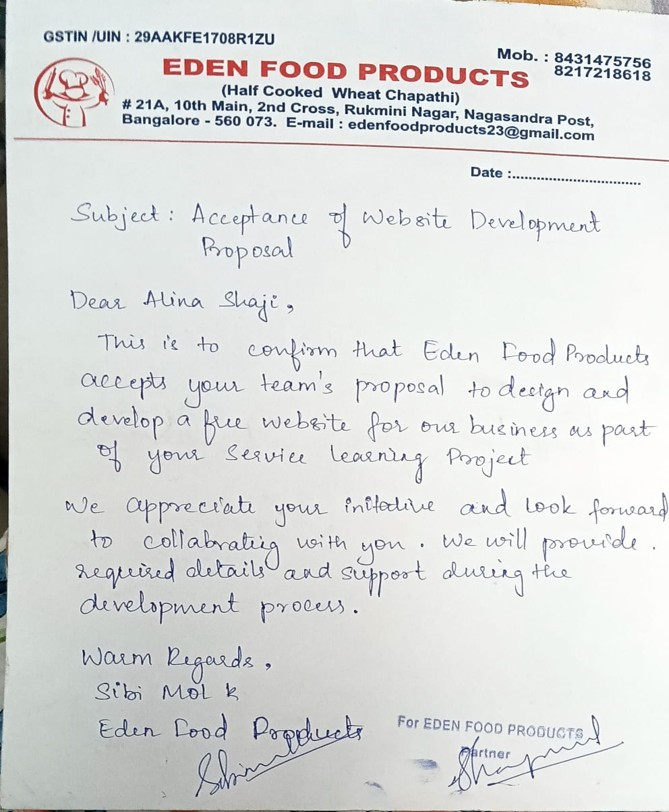 GSTIN /UIN : 29AAKFE1708R1ZU
Mob. : 8431475756
8217218618
EDEN FOOD PRODUCTS
(Half Cooked Wheat Chapathi)
# 21A, 10th Main, 2nd Cross, Rukmini Nagar, Nagasandra Post,
Bangalore - 560 073. E-mail : edenfoodproducts23@gmail.com
Date :................................
Subject : Acceptance of Website Development
Proposal
Dear Alina Shaji,
This is to confirm that Eden Food Products
accepts your team's proposal to design and
develop a free website for our business as part
of your Service Learning Project
We appreciate your initative and look forward
to collabrating with you. We will provide.
required details and support during the
development process.
Warm Regards,
Sibi Mol k
Eden Food Products
For EDEN FOOD PRODUCTS
Partner